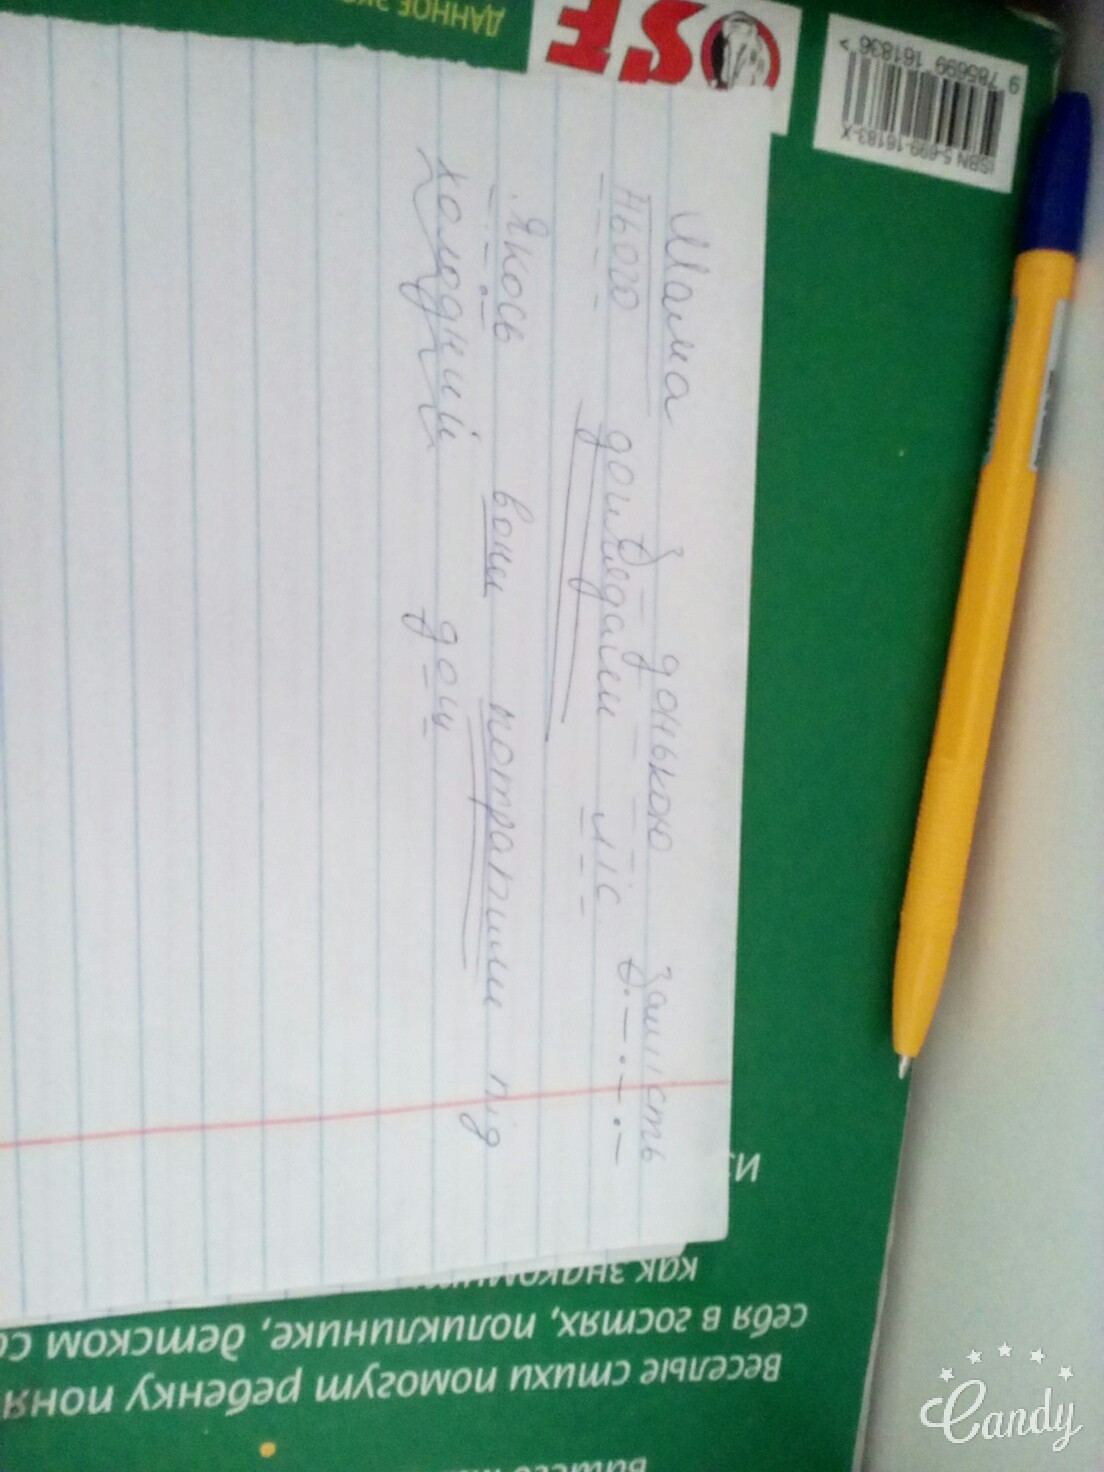 Мама з донькою замість
нього доглядали ліс
Якось вони потрапили під
холодний дощ
ДАННОЕ
SF
9 785699 161836 >
ISBN 5-699-16183-X
как
себя в гостях, поликлинике, детском
Веселые стихи помогут ребенку
Candy